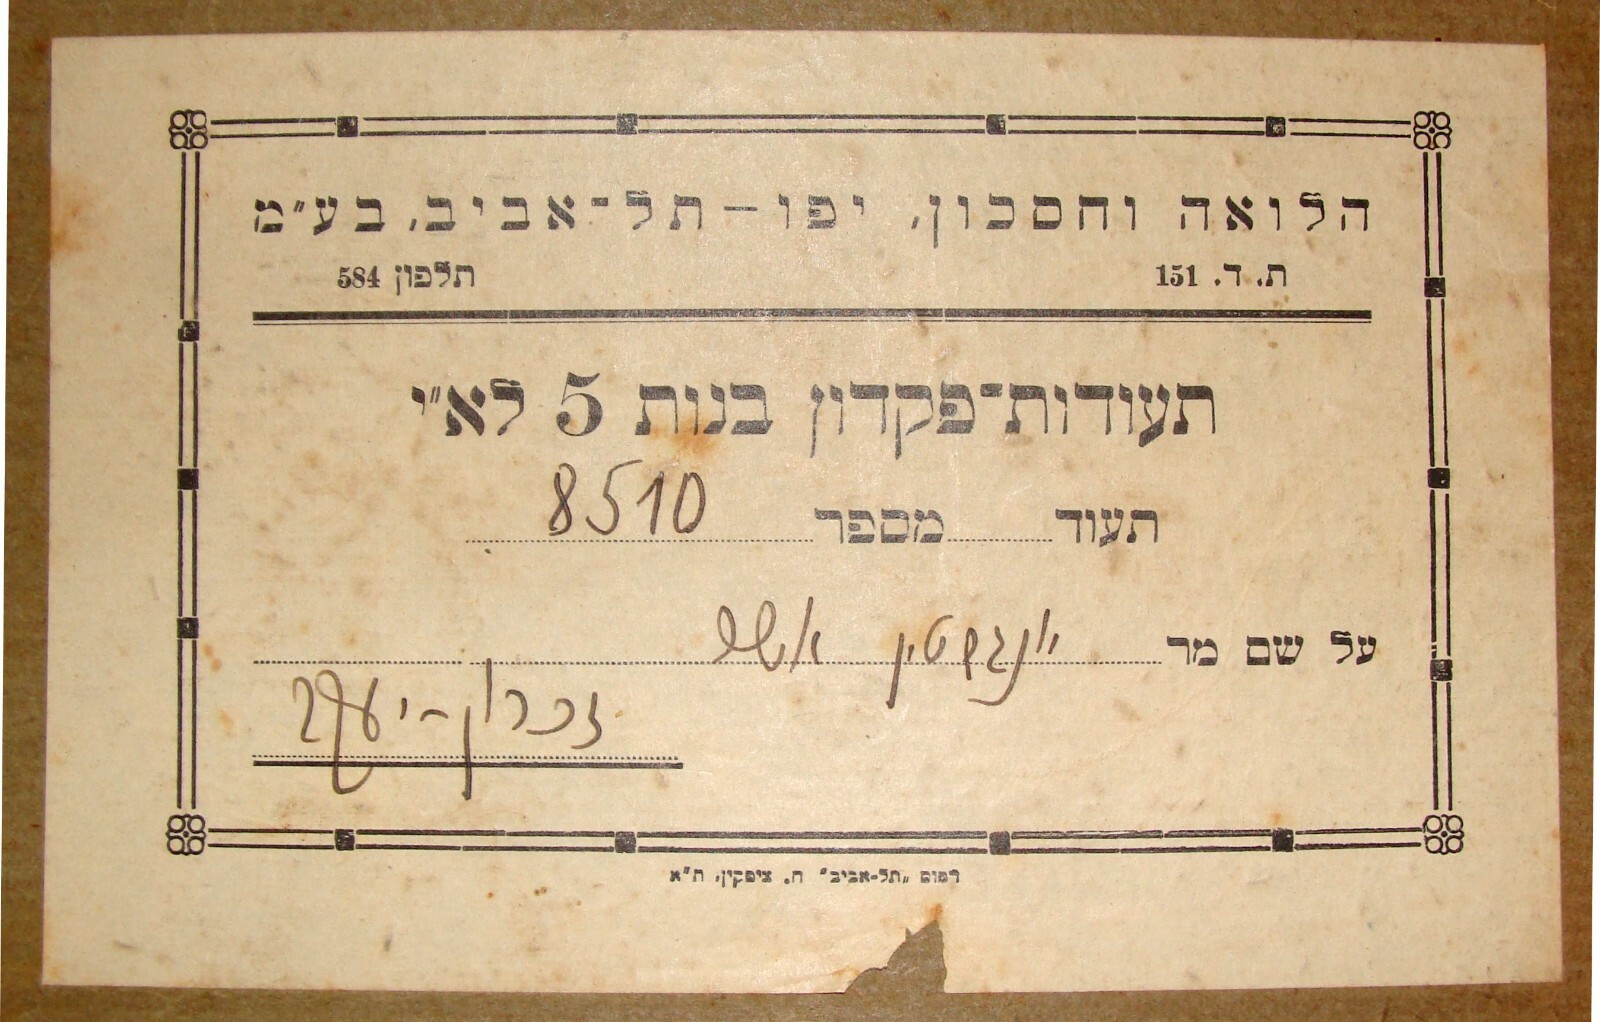 הלואה וחסכון, יפו – תל־אביב, בע״מ
ת. ד. 151 תלפון 584
תעודות־פקדון בנות 5 לא״י
תעוד מספר 8510
על שם מר יונגשטין אשר
זכרון-יעקב
דפוס „תל-אביב” ח. ציפקין, ת״א